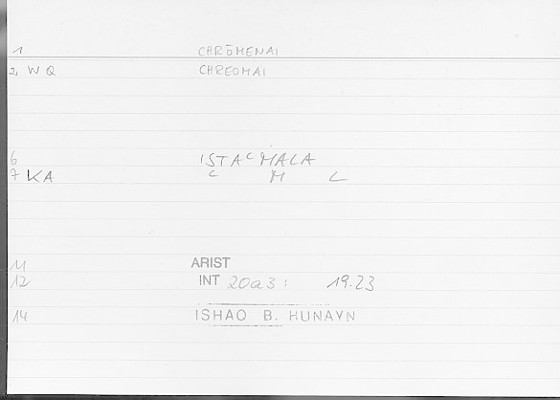 1 CHRŌMENAI
2, WQ CHREOMAI
6 ISTAᶜMALA
7 KA C M L
11 ARIST
12 INT 20a3: 19.23
14 ISHAQ B. HUNAYN